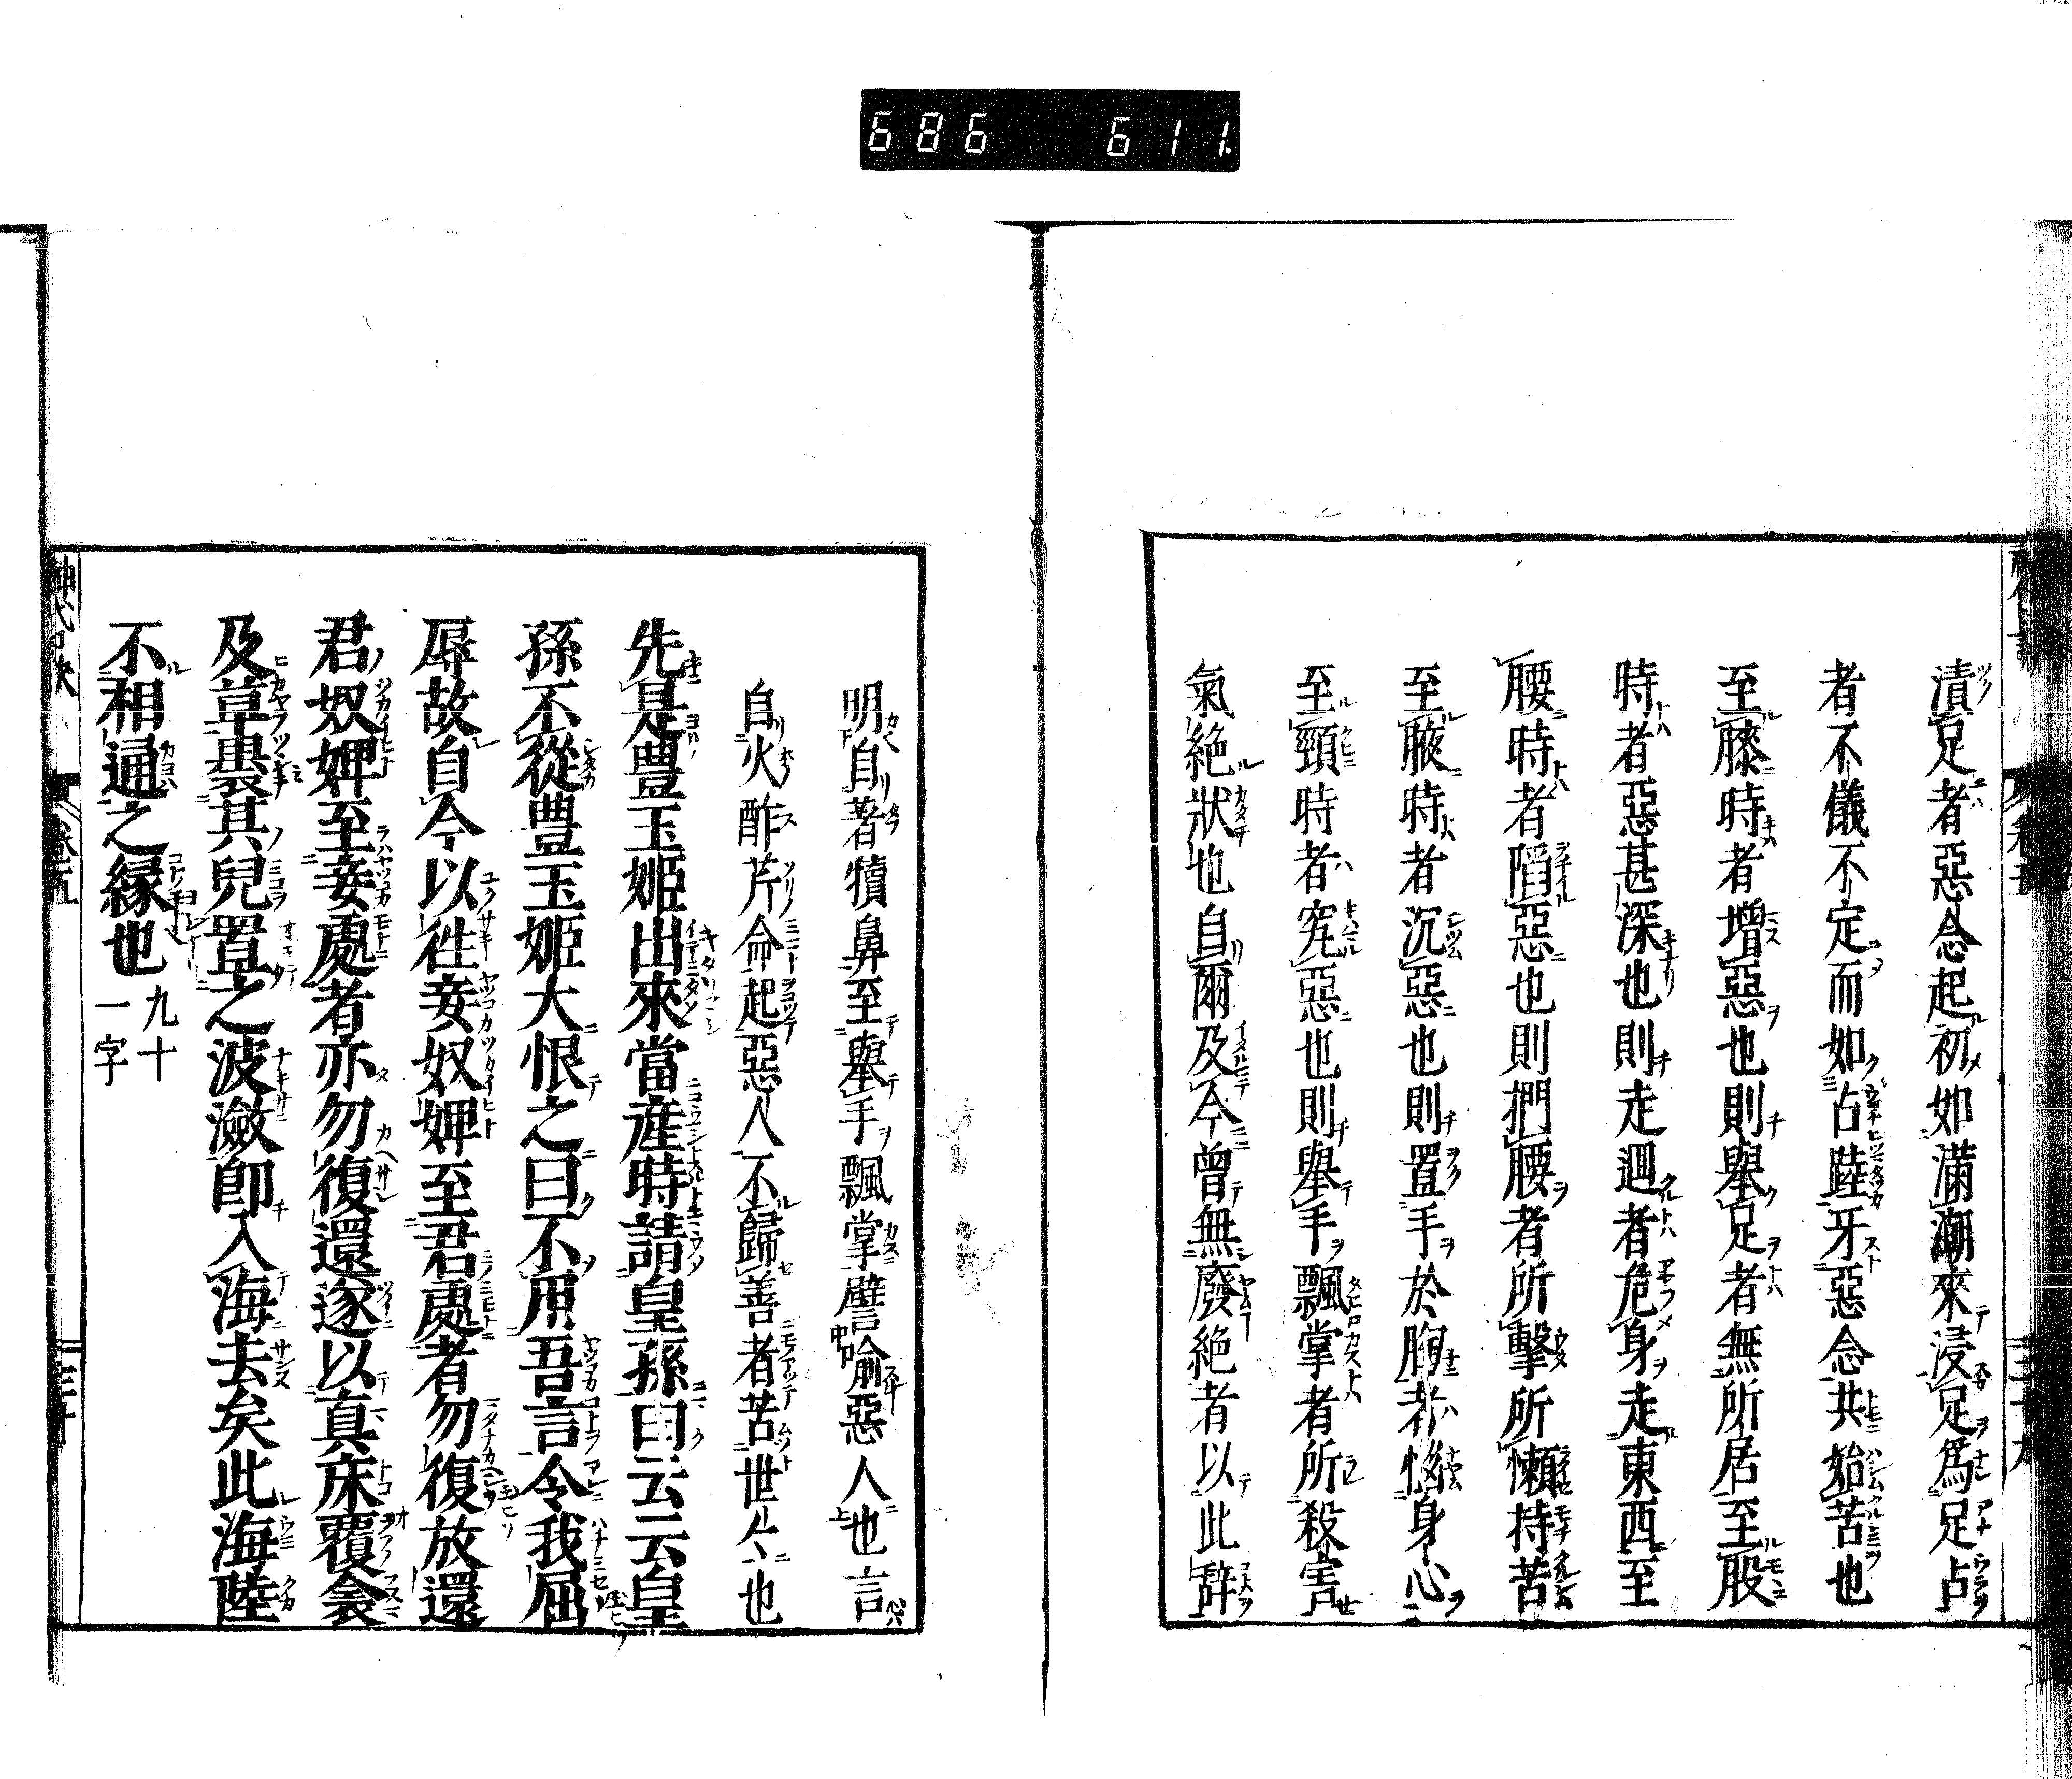 686 611.
漬足者惡念起初如滿潮來浸足爲足占
者不儀不定而如占陸牙惡念共始苦也
至膝時者增惡也則擧足者無所居至股
時者惡甚深也則走廻者危身走東西至
腰時者陷惡也則捫腰者所擊所懶持苦
至腋時者沉惡也則置手於胸者惱身心
至頸時者究惡也則擧手飄掌者所殺害
氣絶狀也自爾及今曾無廢絶者以此辭
明自著犢鼻至擧手飄掌譬喻惡人也言
自火酢芹命起惡人不歸善者苦世人也
先是豊玉姫出來當産時請皇孫曰云云皇
孫不從豊玉姫大恨之曰不用吾言令我屈
辱故自今以徃妾奴婢至君處者勿復放還
君奴婢至妾處者亦勿復還遂以真床覆衾
及草裹其兒置之波瀲即入海去矣此海陸
不相通之縁也九十
一字